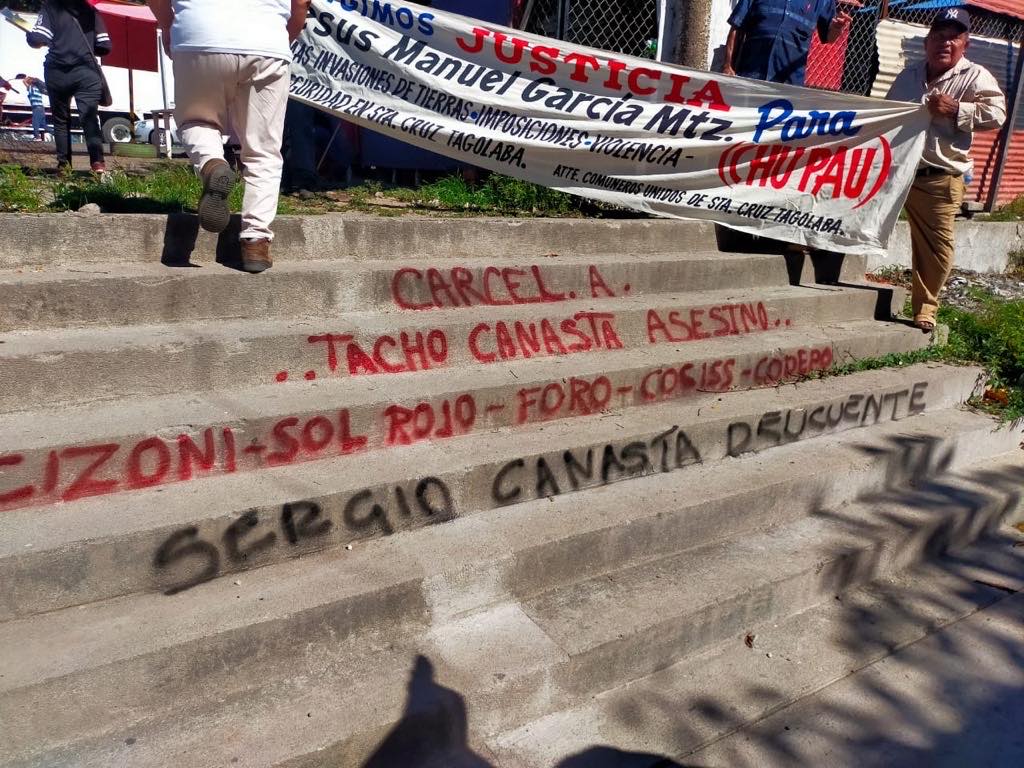 IGIMOS JUSTICIA Para
SUS Manuel García Mtz. (CHU PAU)
LAS INVASIONES DE TIERRAS-IMPOSICIONES-VIOLENCIA-
GURIDAD EN STA. CRUZ TAGOLABA.
ATTE. COMUNEROS UNIDOS DE STA. CRUZ TAGOLABA.
CARCEL. A.
..TACHO CANASTA ASESINO..
CIZONI-SOL ROJO-FORO-COSISS-CODEPO
SERGIO CANASTA DELICUENTE